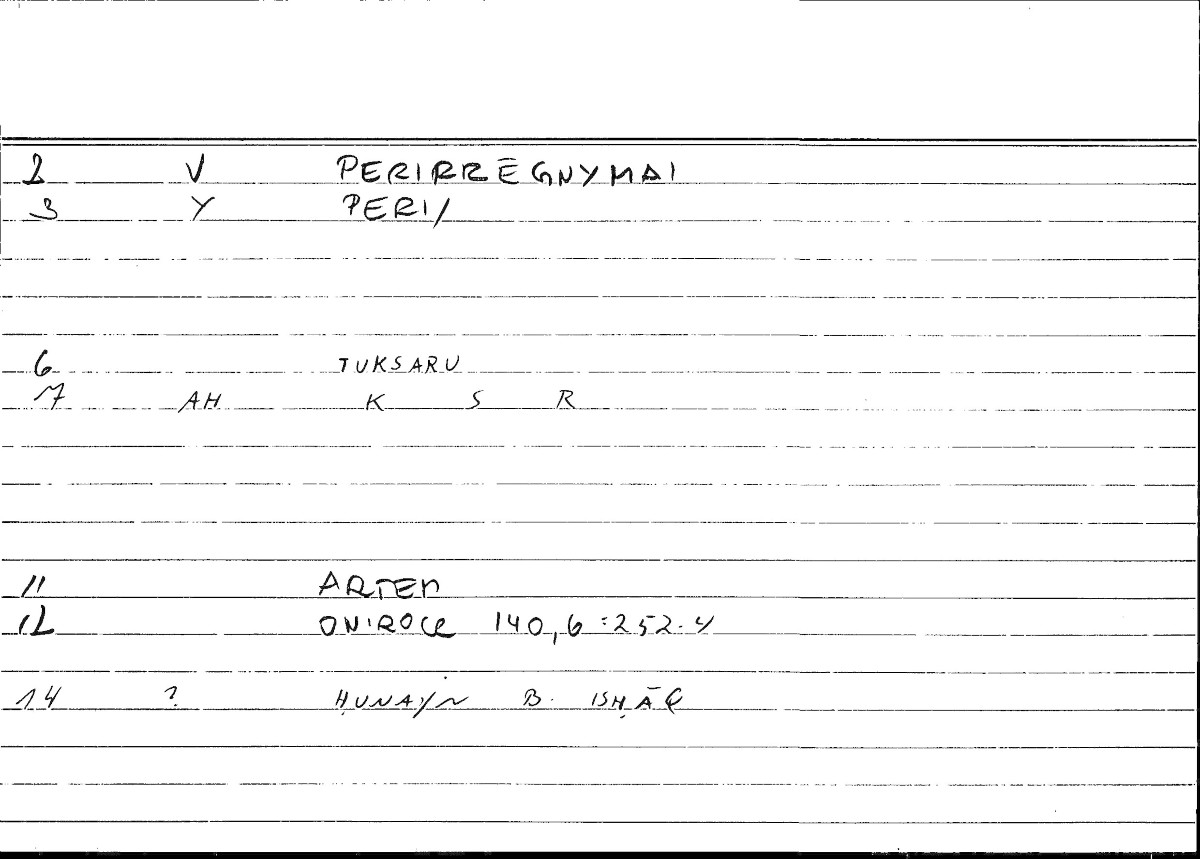 2 V PERIRRĒGNYMAI
3 Y PERI/
6 TUKSARU
7 AH K S R
11 ARTEM
12 ONIROCR 140,6 = 252.4
14 ? ḤUNAYN B. ISḤĀQ